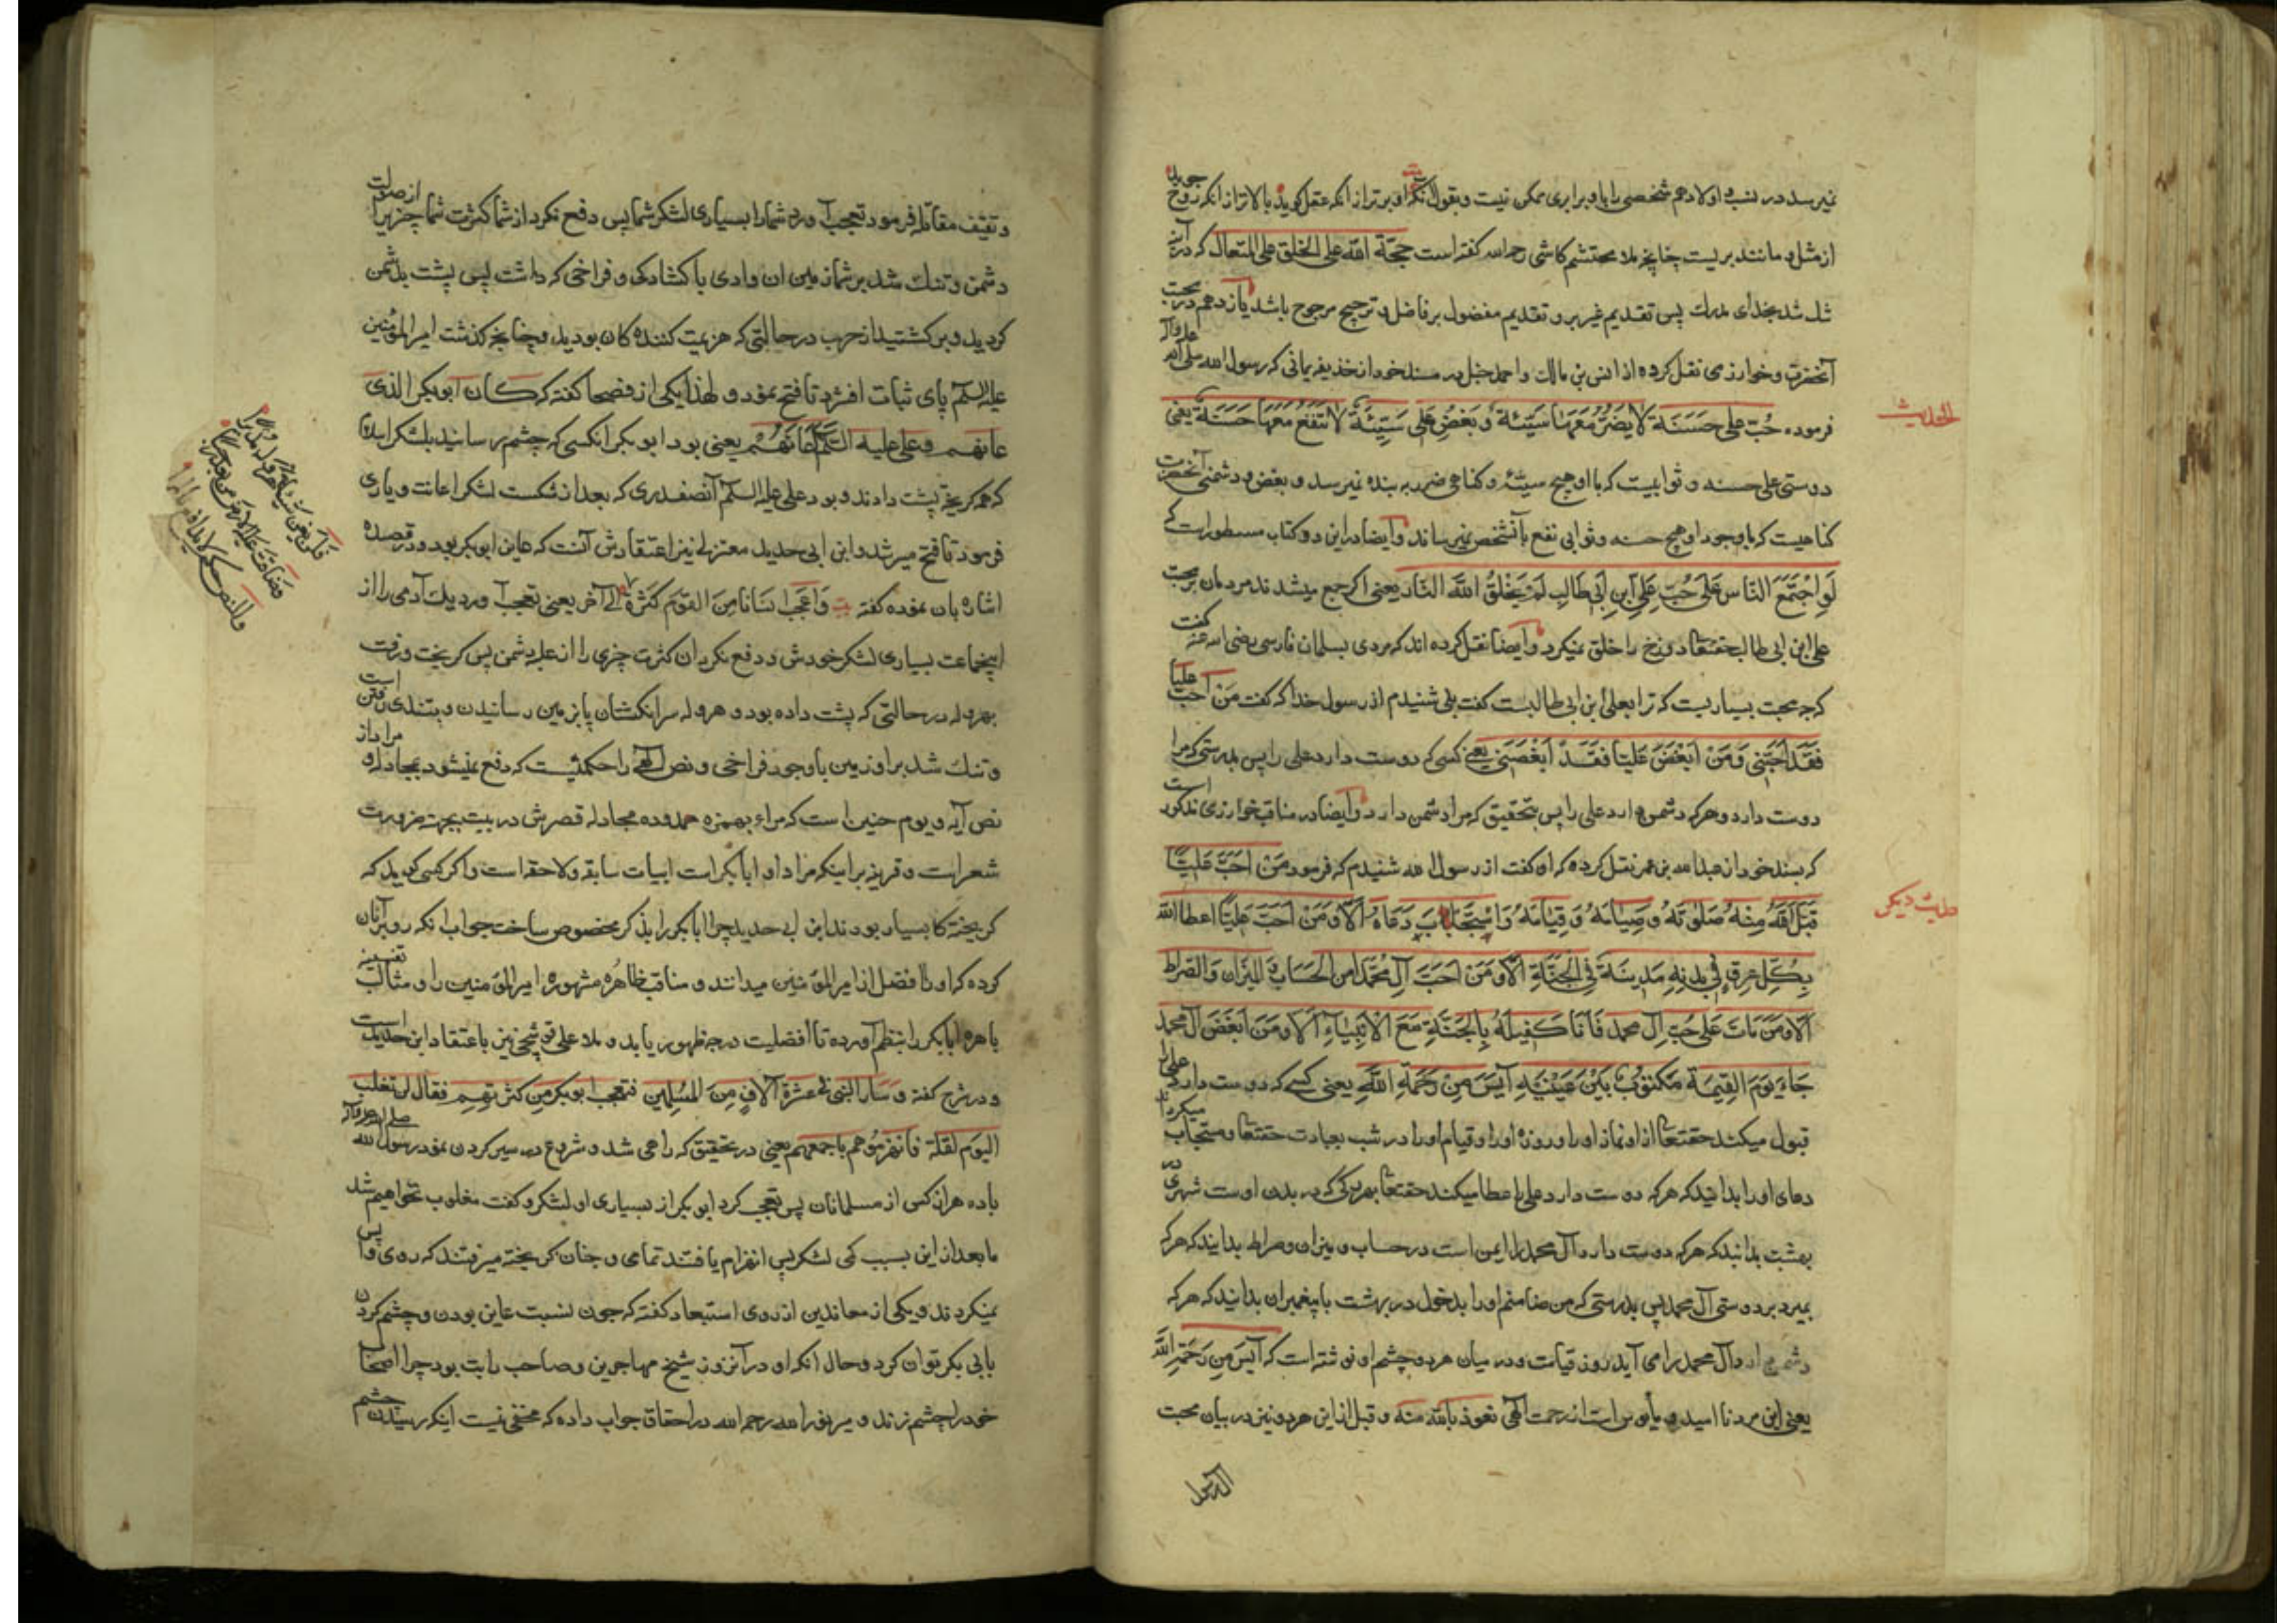 نمیرسد در نسب و اولاد هم شخصی را با و برابری ممکن نیست و بقول آنکه او برتر از انکه عقل کوید بالاتر از انکه روح جوید
از مثل و مانند بریست چنانچه ملا محتشم کاشی رحمه الله کفته است حجة الله علی الخلق علی المتعال که در آینه
شک شد بخدای مدرک پس تقدیم غیر بر و تقدیم مفضول بر فاضل و ترجیح مرجوح باشد یازدهم در محبت
آنحضرت و خوارزمی نقل کرده از انس بن مالک و احمد حنبل در مسند خود از حذیفه یمانی که رسول الله صلی الله علیه وآله
فرموده حُبّ علی حَسَنَة لا یَضُرُّ مَعَهَا سَیّئة وَ بَغْضُ عَلی سَیّئَة لا تَنْفَعُ مَعَهَا حَسَنَة یعنی
الحدیث
دوستی علی حسنه و ثوابیست که با او هیچ سیئه و کناهی ضرر به بنده نمیرسد و بغض و دشمنی آنحضرت
کناهیست که با وجود او هیچ حسنه و ثوابی نفع بآنشخص نمیرساند و ایضا در این دو کتاب مسطور است که
لَوِ اجْتَمَعَ النّاس عَلی حُبّ عَلِیِّ ابْنِ اَبی طَالِبٍ لَمْ یَخْلُقُ اللّهَ النّار یعنی اکر جمع میشدند مردمان بر محبت
علی ابن ابی طالب حقتعا دوزخ را خلق نمیکرد و ایضا نقل کرده اند که مردی بسلمان فارسی رضی الله عنه کفت
که چه محبت بسیاریست که ترا بعلی ابن ابی طالبست کفت بلی شنیدم از رسول خدا که کفت مَنْ اَحَبَّ علیّاً
فَقَدْ اَحَبَّنی وَ مَنْ اَبْغَضَ عَلیّا فَقَدْ اَبْغَضَنی یعنی کسی که دوست دارد علی را پس بدرستی که مرا
دوست دارد و هر که دشمن دارد علی را پس بتحقیق که مرا دشمن دارد و ایضا در مناقب خوارزمی مذکور است
که بسند خود از عبدالله بن عمر نقل کرده که او کفت از رسول الله شنیدم که فرمود مَنْ اَحَبَّ عَلیّاً
قَبِلَ اللّهُ مِنْهُ صَلوتَهُ و صِیامَهُ وَ قِیَامَهُ وَ اسْتَجَابَ دَعَاهُ اَلا وَ مَنْ اَحَبَّ عَلیّاً اعطاه الله
حدیث دیکر
بِکُلِّ عِرقٍ فی بَدَنِهِ مَدِینَة فِی الْجَنَّةِ اَلا وَ مَنْ اَحَبَّ آلِ مُحَمَّدٍ اَمِنَ الْحِسَاب وَ المیزان وَ الصّراط
اَلا وَ مَنْ مَاتَ عَلی حُبِّ آلِ محمد فَاَنَا کَفِیلَهُ بِالجَنَّةِ مَعَ الاَنْبِیَاءِ اَلا وَ مَنَ اَبْغَضَ آل محمد
جَاءَ یَوْمَ القِیمَة مَکْتُوبٌ بَیْنَ عَیْنَیْهِ آیِسٌ مِنْ رَحْمَةِ اللّهِ یعنی کسی که دوست دارد علی را
قبول میکند حقتعا از او نماز او را و روزه او را و قیام او را در شب بعبادت حقتعا و مستجاب میکرداند
دعای او را بدانید که هر که دوست دارد علی را عطا میکند حقتعا بهر رکی که در بدن اوست شهری در
بهشت بدانید که هر که دوست دارد آل محمد را ایمن است در حساب و میزان و صراط بدانید که هر که
بمیرد بر دوستی آل محمد پس بدرستی که من ضامنم او را بدخول در بهشت با پیغمبران بدانید که هر که
دشمن دارد آل محمد را می آید روز قیامت و در میان هر دو چشم او نوشته است که آیس مِن رَحْمَةِ اللّه
یعنی این مرد نا امید و مأیوس است از رحمت الهی نعوذ بالله منه و قبل از این هر دو نیز در بیان محبت
و ثقیف مقاتله فرمود تعجب آورد شما را بسیاری لشکر شما پس دفع نکرد از شما کثرت شما چیزیرا از صولت
دشمن و تنک شد بر شما زمین ان وادی با کشادکی و فراخی که داشت پس پشت بدشمن
کردید و برکشتید از حرب در حالتی که هزیمت کننده کان بودید و چنانچه کذشت امیر المؤمنین
علیه السلم پای ثبات افشرد تا فتح نمود و لهذا یکی از فصحا کفته که کان ابوبکر الذی
عانهم و علی علیه السّلم اَعَانَهُم یعنی بود ابوبکر انکسی که چشم رسانید بلشکر اسلام
که همه کریخته پشت دادند و بود علی علیه السلم آنصفدری که بعد از شکست لشکر اعانت و یاری
فرمود تا فتح میسر شد و ابن ابی حدید معتزلی نیز اعتقادش آنست که عاین ابوبکر بود و در قصیده
اشاره بان نموده کفته بیت وَاَعْجَبَ اِنسَاناً مِنَ القَوْمِ کَثْرَة الی آخر یعنی تعجب آورد یک آدمی را از
اینجماعت بسیاری لشکر خودش و دفع نکرد ان کثرت چیزی را از غلبه دشمن پس کریخت و رفت
بهروله در حالتی که پشت داده بود و هروله سر انکشتان پا بزمین رسانیدن و بتندی رفتن است
و تنک شد بر او زمین با وجود فراخی و نص الهی را حکمیست که دفع نمیشود بمجادله و مراد از
نص آیه و یوم حنین است که مراء بهمزه ممدوده مجادله قصرش در بیت بجهة ضرورت
شعر است و قرینه بر اینکه مراد او ابابکر است ابیات سابقه و لاحقه است و اکر کسی کوید که
کریخته کا بسیار بودند ابن ابی حدید چرا ابابکر را بذکر مخصوص ساخت جواب انکه رو بر آنان
کرده که او را افضل از امیر المؤمنین میدانند و مناقب ظاهره مشهوره امیر المؤمنین را و مثالب
باهره ابابکر را بنظم آورده تا افضلیت درجه ظهور یابد و ملا علی قوشچی نیز باعتقاد ابن حدید است
و در شرح کفته و سَار النبی فی عشرة آلافٍ مِنَ المُسلِمین فتعجب ابوبکر مِن کثرتِهِم فقال لن نغلب
الیوم لقلة فانهزمُوهم باجمعِهِم یعنی در تحقیق که راهی شد و شروع در سیر کردن نمود رسول الله صلی الله علیه وآله
با ده هزار کس از مسلمانان پس تعجب کرد ابوبکر از بسیاری او لشکر و کفت مغلوب نخواهیم شد
ما بعد از این بسبب کمی لشکر پس انهزام یافتند تمامی و چنان کریخته میرفتند که روی وا پس
نمیکردند و یکی از معاندین از روی استبعاد کفته که چون نسبت عاین بودن و چشم کردن
بابی بکر توان کرد و حال انکه او در آنروز شیخ مهاجرین و صاحب رایت بود چرا اصحاب
خود را چشم زند و میر نور الله رحمه الله در احقاق جواب داده که مخفی نیست اینکه رسیدن چشم